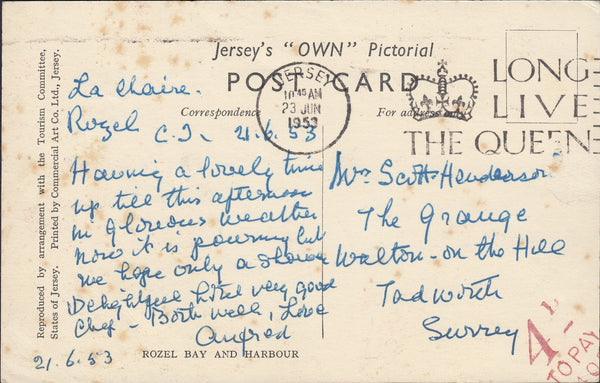 Jersey's "OWN" Pictorial
POST CARD
Correspondence
For address only
JERSEY
10 45 AM
23 JUN
1953
LONG
LIVE
THE QUEEN
La Chaire.
Rozel C.I. 21.6.53
Having a lovely time
up till this afternoon
in glorious weather
now it is pouring but
we hope only a shower
Delightful hotel very good
Chef - Both well, Love
21.6.53
ROZEL BAY AND HARBOUR
Mrs Scott Henderson
The Grange
Walton-on the Hill
Tadworth
Surrey
4D
TO PAY
Reproduced by arrangement with the Tourism Committee,
States of Jersey. Printed by Commercial Art Co. Ltd., Jersey.